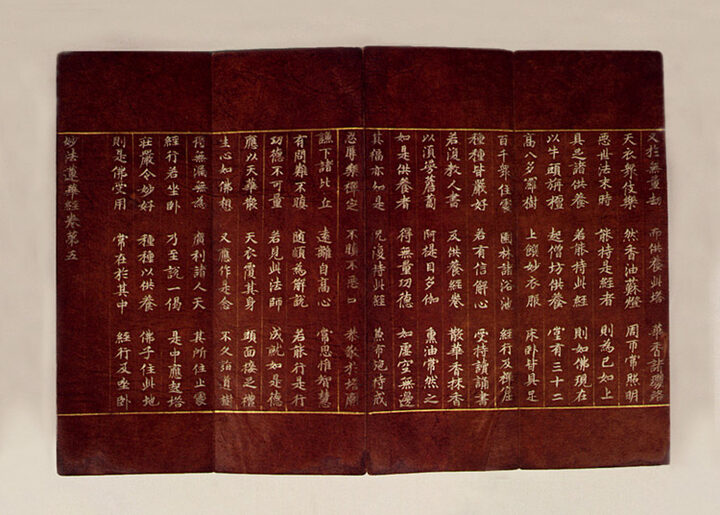 又於無量劫 而供養此塔 華香諸瓔珞
天衣衆伎樂 然香油蘇燈 周匝常照明
惡世法末時 能持是經者 則為已如上
具足諸供養 若能持此經 則如佛現在
以牛頭栴檀 起僧坊供養 堂有三十二
高八多羅樹 上饌妙衣服 床臥皆具足
百千衆住處 園林諸浴池 經行及禪窟
種種皆嚴好 若有信解心 受持讀誦書
若復教人書 及供養經卷 散華香抹香
以須曼薝蔔 阿提目多伽 熏油常然之
如是供養者 得無量功德 如虛空無邊
其福亦如是 況復持此經 兼布施持戒
忍辱樂禪定 不瞋不惡口 恭敬於塔廟
謙下諸比丘 遠離自高心 常思惟智慧
有問難不瞋 隨順為解說 若能行是行
功德不可量 若見此法師 成就如是德
應以天華散 天衣覆其身 頭面接足禮
生心如佛想 又應作是念 不久詣道樹
得無漏無為 廣利諸人天 其所住止處
經行若坐臥 乃至說一偈 是中應起塔
莊嚴令妙好 種種以供養 佛子住此地
則是佛受用 常在於其中 經行及坐臥
妙法蓮華經卷第五